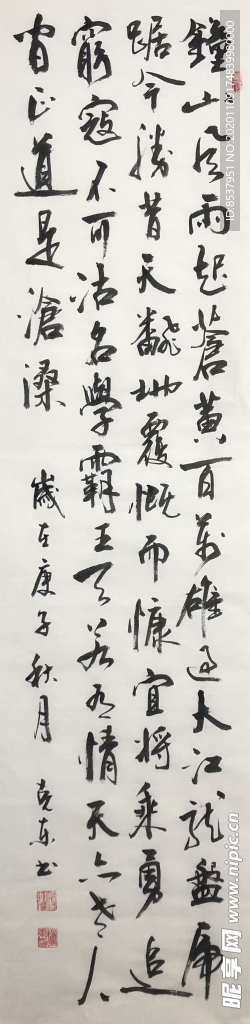 鐘山風雨起蒼黄百萬雄過大江龍盤虎
踞今勝昔天翻地覆慨而慷宜將乘勇追
窮寇不可沽名學霸王天若有情天亦老人
间正道是滄桑
歲在庚子秋月
克东书
ID:8537951 NO:20201109174839980000
昵享网 www.nipic.cn